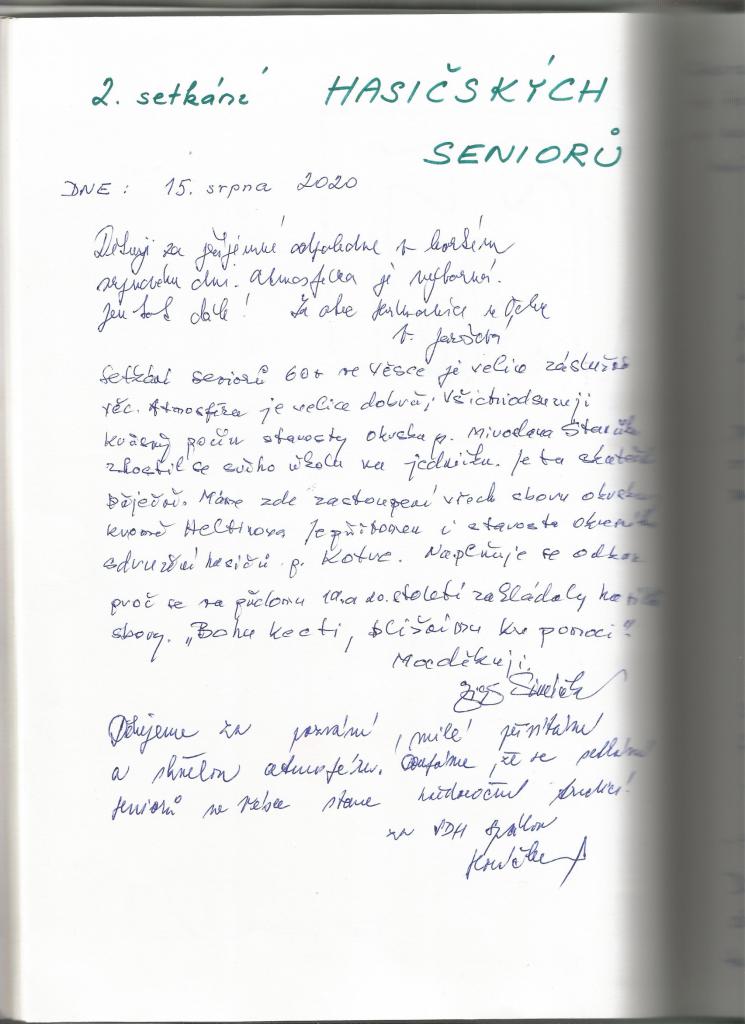 2. setkání HASIČSKÝCH
SENIORŮ
DNE: 15. srpna 2020
Děkuji za příjemné odpoledne v horkém
srpnovém dni. Atmosféra je výborná.
Jen tak dále! Za obec
Setkání seniorů 60+ ve Vésce je velice záslužná
věc. Atmosféra je velice dobrá, všichni
krásný počin starosty okrsku p. Miroslava
zhostil se svého úkolu na jedničku. Je to
báječné. Máme zde zastoupení všech sborů
kromě Heltínova. Je přítomen i starosta
sdružení hasičů p. Kotrc. Naplňuje se odkaz
proč se na přelomu 19. a 20. století zakládaly
sbory. „Bohu ke cti, bližnímu ku pomoci"
Moc děkuji.
Děkujeme za pozvání, milé přivítání
a skvělou atmosféru. Doufáme, že se setkání
seniorů ve Vésce stane každoroční tradicí!
za SDH